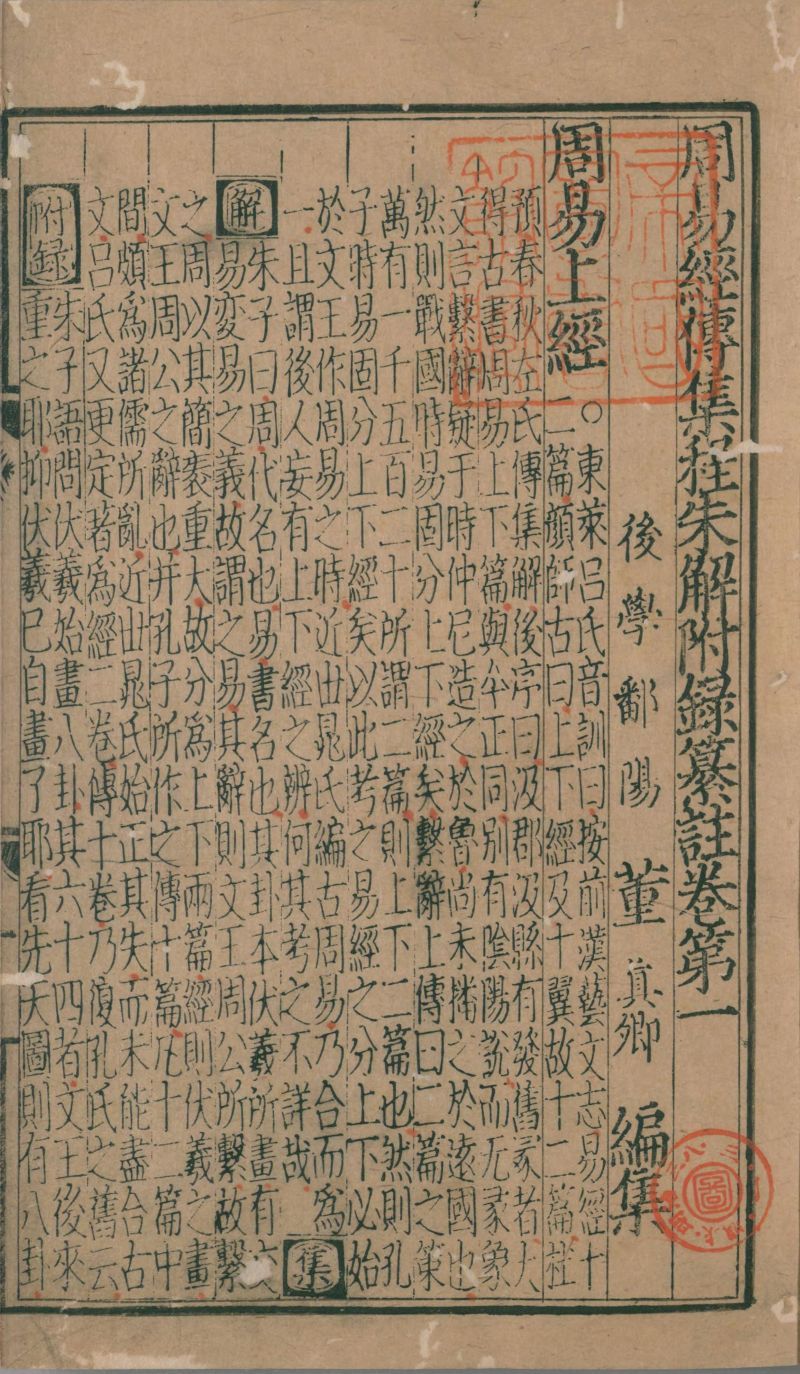 周易經傳集程朱解附録纂註卷第一
後學鄱陽董真卿編集
周易上經
○東萊吕氏音訓曰按前漢藝文志易經十
二篇顔師古曰上下經及十翼故十二篇杜
預春秋左氏傳集解後序曰汲郡汲縣有發舊冢者大
得古書周易上下篇與今正同别有陰陽説而无彖象
文言繫辭疑于時仲尼造之於魯尚未播之於遠國也
然則戰國時易固分上下經矣繫辭上傳曰二篇之策
萬有一千五百二十所謂二篇則上下二篇也然則孔
子時易固分上下經矣以此考之易經之分上下必始
於文王作周易之時近世晁氏編古周易乃合而爲
一且謂後人妄有上下經之辨何其考之不詳哉 集
解 朱子曰周代名也易書名也其卦本伏羲所畫有交
易変易之義故謂之易其辭則文王周公所繫故繫
之周以其簡袠重大故分爲上下兩篇經則伏羲之畫
文王周公之辭也并孔子所作之傳十篇凡十二篇中
間頗爲諸儒所亂近世晁氏始正其失而未能盡合古
文吕氏又更定著爲經二卷傳十卷乃復孔氏之舊云
附録 朱子語問伏羲始畫八卦其六十四者文王後來
重之耶抑伏羲已自畫了耶看先天圖則有八卦